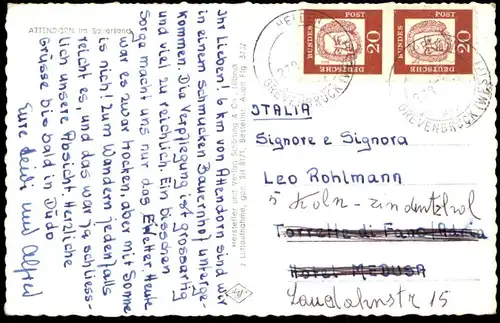 ATTENDORN im Sauerland
Ihr Lieben! 6 km von Attendorn sind wir
in einem schmucken Bauernhof unterge-
kommen. Die Verpflegung ist grossartig
und viel zu reichlich. Ein bisschen
Sorge macht uns nur das Wetter. Heute
war es zwar trocken, aber mit Sonne
is nich! Zum Wandern jedenfalls
reicht es, und das war ja schliess-
lich unsere Absicht. Herzliche
Grüsse bis bald in Düdo
Eure Leidi und Alfred
Hersteller und Verlag Schöning & Co., Lübeck
Luftaufnahme, gen. SH 8171, Bestellnr. Auen Flg. 3172
DEUTSCHE BUNDESPOST 20
DEUTSCHE BUNDESPOST 20
GREVENBRÜCK
GREVENBRÜCK (WESTF)
ITALIA
Signore e Signora
Leo Rohlmann
5 Köln-Lindenthal
Torrette di Fano/Adria
Hotel MEDUSA
Lauglahnstr 15